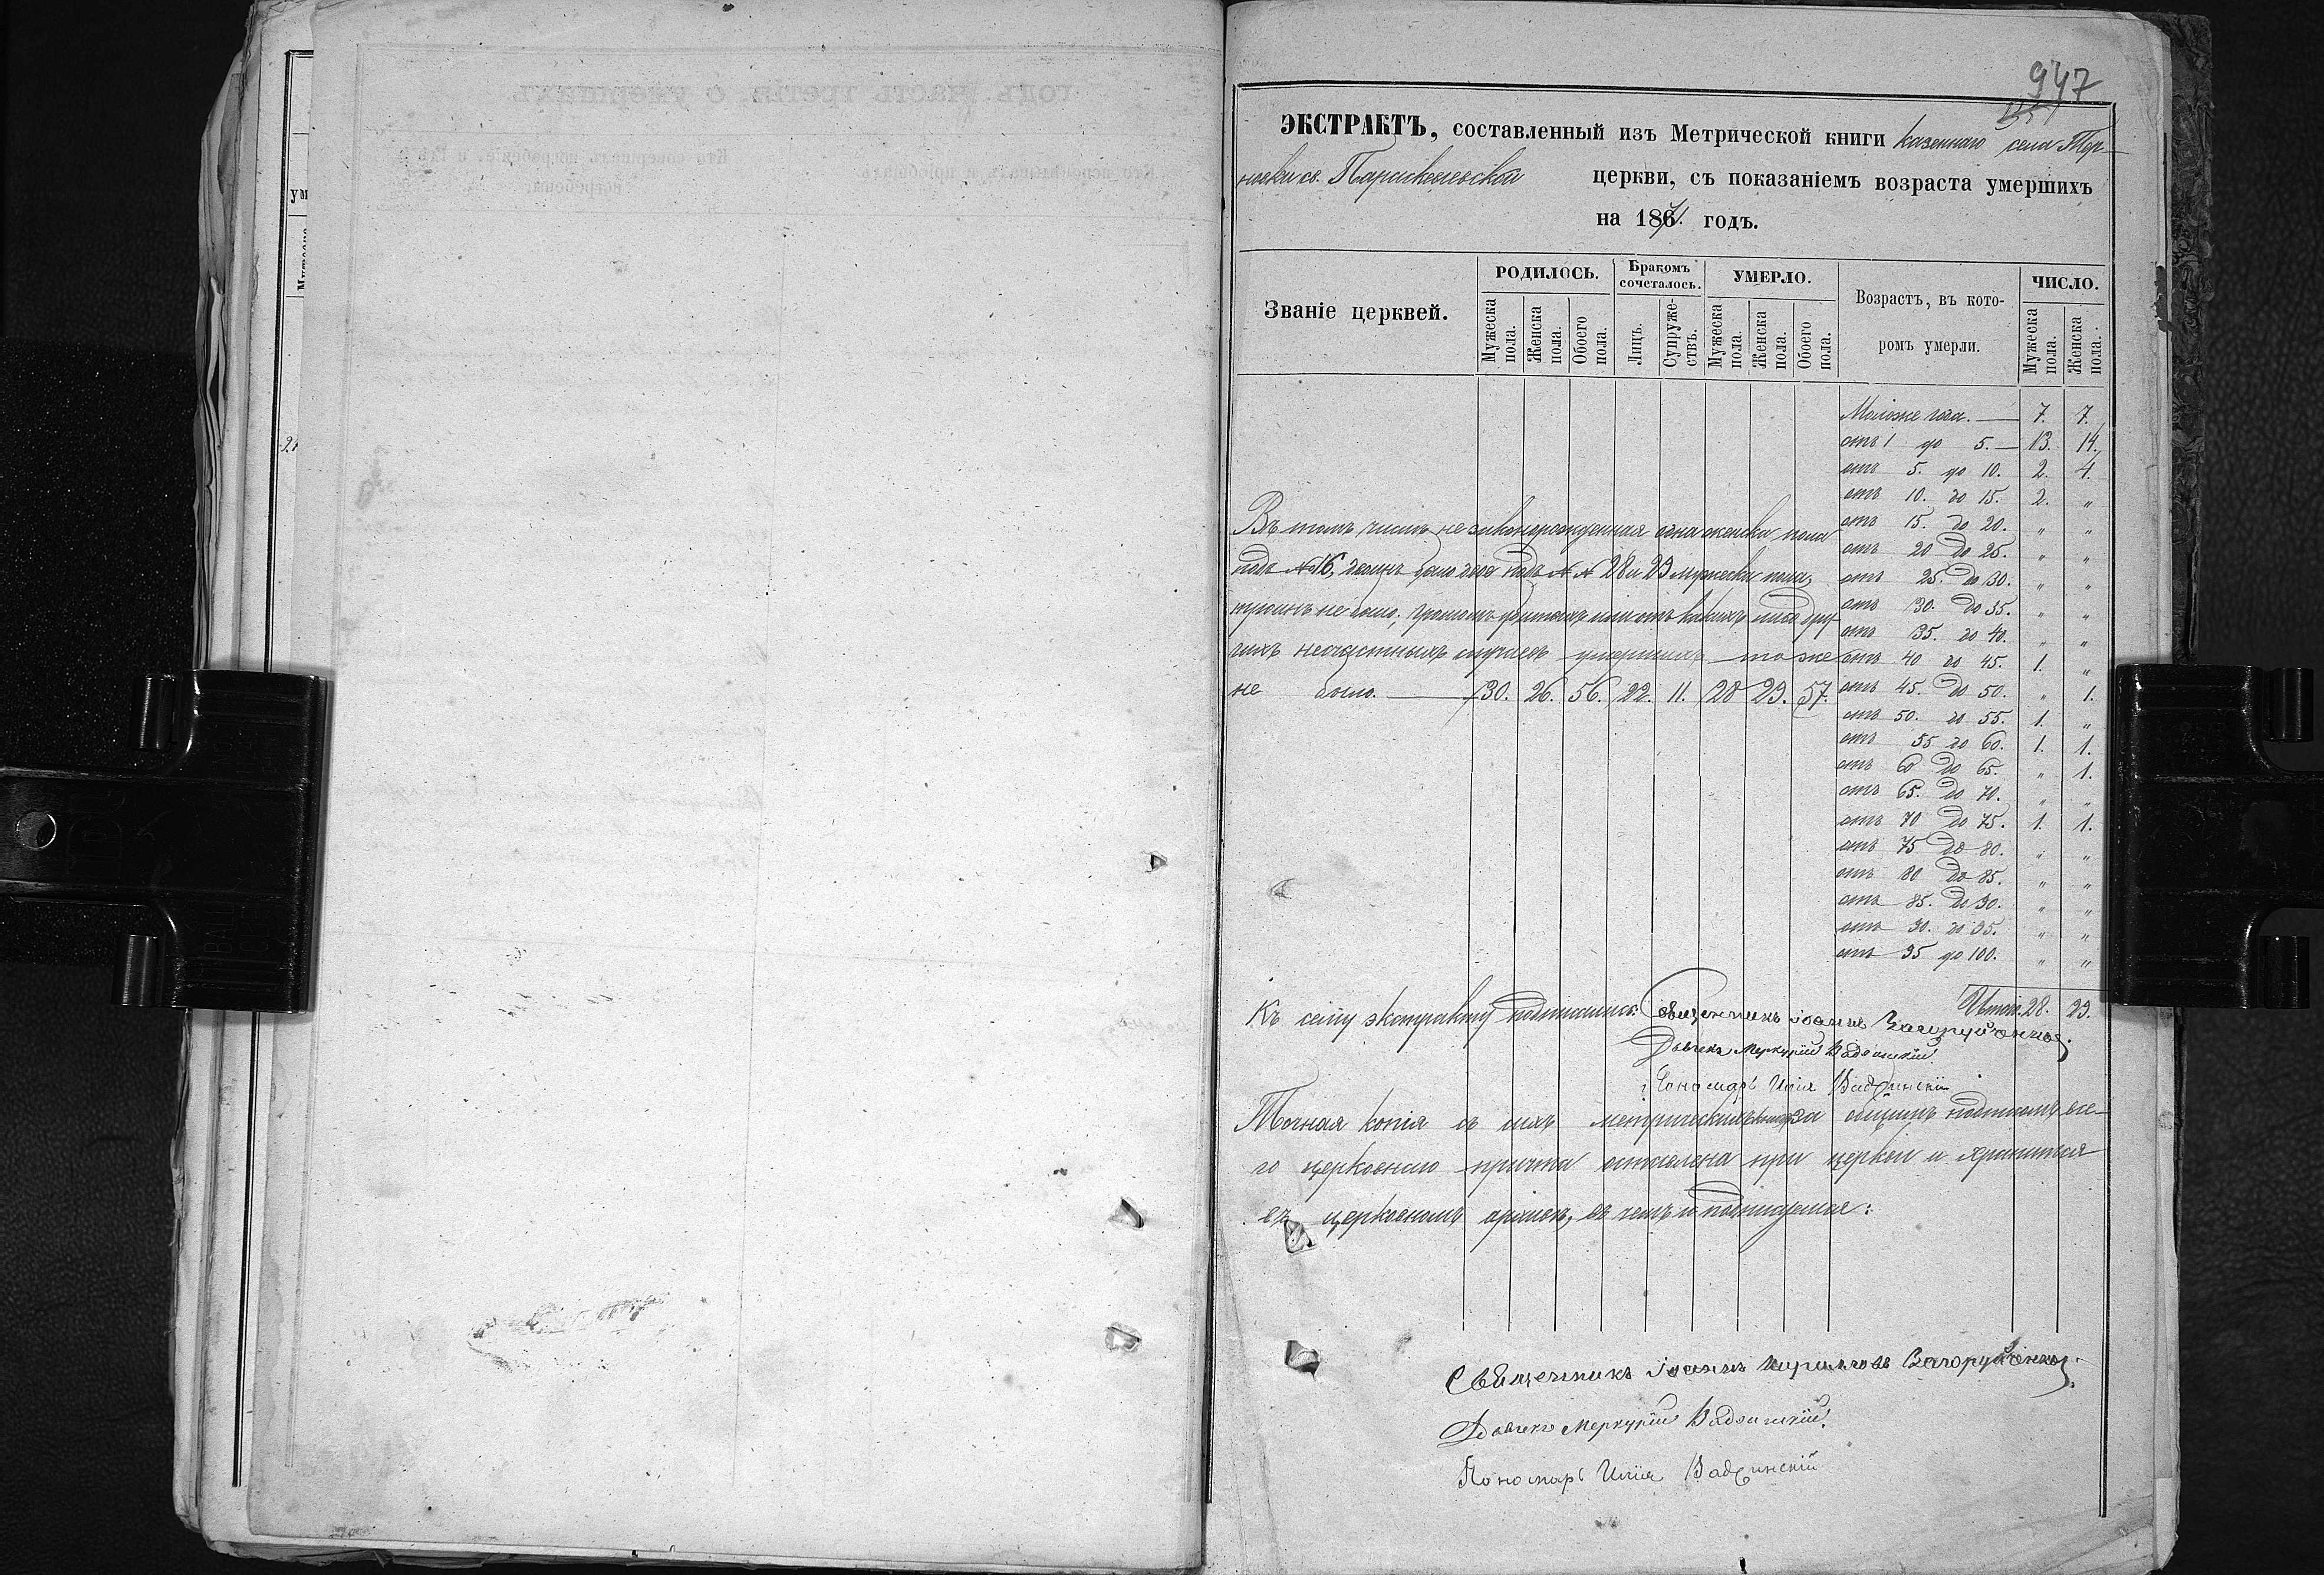 947
ЭКСТРАКТЪ, составленный изъ Метрической книги казеннаго села Тер-
новки св. Параскевіевской церкви, съ показаніемъ возраста умершихъ
на 1871. годъ.
Званіе церквей.
РОДИЛОСЬ.
Мужеска пола.
Женска пола.
Обоего пола.
Бракомъ сочеталось.
Лицъ.
Супружествъ.
УМЕРЛО.
Мужеска пола.
Женска пола.
Обоего пола.
Возрастъ, въ кото-
ромъ умерли.
ЧИСЛО.
Мужеска пола.
Женска пола.
Моложе года. — 7. 7.
отъ 1 до 5. — 13. 14.
отъ 5. до 10. 2. 4.
отъ 10. до 15. 2. „
отъ 15. до 20. „ „
отъ 20 до 25. „ „
отъ 25. до 30. „ „
отъ 30. до 35. „ „
отъ 35. до 40. „ „
отъ 40 до 45. 1. „
отъ 45. до 50. „ 1.
отъ 50. до 55. 1. „
отъ 55 до 60. 1. 1.
отъ 60 до 65. „ 1.
отъ 65. до 70. „ „
отъ 70 до 75. 1. 1.
отъ 75 до 80. „ „
отъ 80 до 85. „ „
отъ 85. до 90. „ „
отъ 90. до 95. „ „
отъ 95 до 100. „ „
Итого. 28. 29.
Въ томъ числѣ незаконорожденная одна женска пола
подъ №16, двоинъ было двое подъ №№ 28 и 29 мужеска пола,
троинъ не было; громомъ убитыхъ или отъ какихъ либо дру-
гихъ несчастныхъ случаевъ умершихъ тоже
не было. — 30. 26. 56. 22. 11. 28 29. 57.
Къ сему экстракту подписались: Священникъ Іоаннъ Загоруйченко.
Дьячекъ Меркурій Вадзинскій
Пономарь Илія Вадзинскій
Точная копія съ сихъ метрическихъ книгъ за общимъ подписомъ все-
го церковнаго причта оставлена при церкви и хранится
въ церковномъ архивѣ, въ чемъ и подписуемся:
Священникъ Іоаннъ Кирилловъ Загоруйченко.
Дьячекъ Меркурій Вадзинскій.
Пономарь Илія Вадзинскій